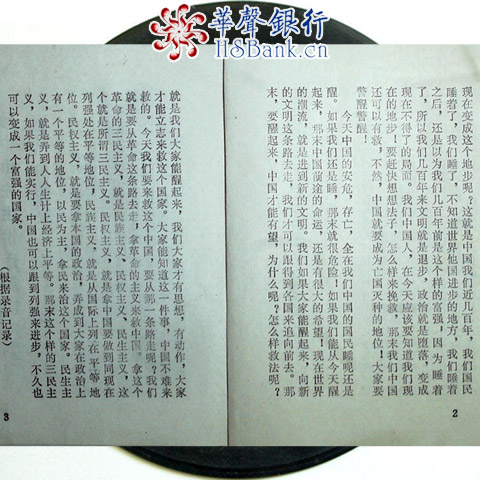 華聲銀行
HSBank.cn
现在变成这个地步呢？这就是中国我们近几百年，我们国民
睡着了，我们睡了，不知道世界他国进步的地方，我们睡着
之后，还是以为我们几百年前是这个样的富强，因为睡着
了，所以我们几百年来文明就是退步，政治就是堕落，变成
现在不得了的局面。我们中国人，在今天应该要知道我们现
在的地步！要赶快想想法子，怎么样来挽救，那末我们中国
还可以有救，不然，中国就要成为亡国灭种的地位！大家要
警醒警醒！
今天中国的安危，存亡，全在我们中国的国民睡呢还是
醒。如果我们还是睡，那末就很危险！如果我们能从今天醒
起来，那末中国前途的命运，还是有很大的希望！现在世界
的潮流，就是进到新的文明。我们如果大家能醒起来，向新
的文明这条路去走，我们才可以跟得到各国来追向前去。那
末，要醒起来，中国才能有望。为什么呢？怎么样救法呢？
2
就是我们大家能醒起来，我们大家才有思想，有动作，大家
才能立志来救这个国家。大家能知道这一件事，中国不难来
救的。今天我们要来救这个中国，要从那一条路走呢？我们
就是要从革命这条路去走，拿革命的主义来救中国。拿这个
革命的三民主义，就是民族主义，民权主义，民生主义，这
就是所谓三民主义。民族主义，就是要拿中国要做到同现在
列强处在平等地位。民族主义，就是从国际上列在平等地
位。民权主义，就是要拿本国的政治，弄成到大家在政治上
有一个平等的地位，以民为主，拿民来治这个国家。民生主
义，就是弄到人人生计上经济上平等。那末这个样的三民主
义，如果我们能实行，中国也可以跟到列强来进步，不久也
可以变成一个富强的国家。
（根据录音记录）
3